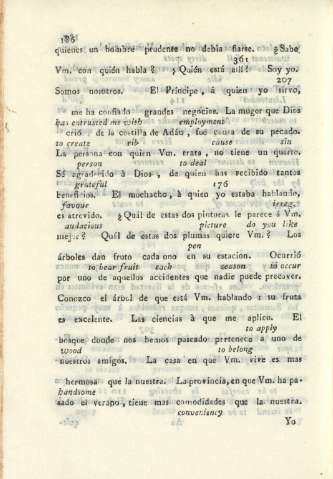 186
quienes un hombre prudente no debia fiarse. ¿Sabe
361
Vm. con quién habla? ¿Quién está allí? Soy yo.
207
Somos nosotros. El Príncipe, á quien yo sirvo,
me ha confiado grandes negocios. La muger que Dios
has entrusted me with employment
crió de la costilla de Adán, fue causa de su pecado.
to create rib cause sin
La persona con quien Vm. trata, no tiene un quarto.
person to deal
Sé agradecido á Dios, de quien has recibido tantos
grateful 176
beneficios. El muchacho, á quien yo estaba hablando,
favour irreg.
es atrevido. ¿Quál de estas dos pinturas le parece á Vm.
audacious picture do you like
mejor? Quál de estas dos plumas quiere Vm.? Los
pen
árboles dan fruto cada uno en su estacion. Ocurrió
to bear fruit each season to occur
por uno de aquellos accidentes que nadie puede precaver.
Conozco el árbol de que está Vm. hablando: su fruta
es excelente. Las ciencias á que me aplico. El
to apply
bosque donde nos hemos paseado pertenece a uno de
wood to belong
nuestros amigos. La casa en que Vm. vive es mas
hermosa que la nuestra. La provincia, en que Vm. ha pa-
handsome
sado el verano, tiene mas comodidades que la nuestra.
conveniency
Yo